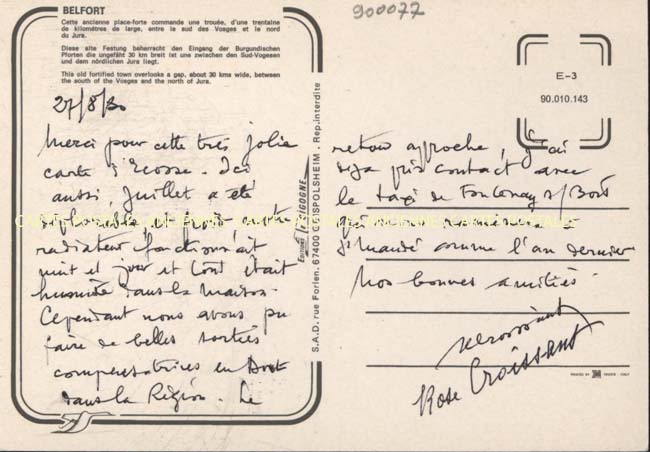 900077
BELFORT
Cette ancienne place-forte commande une trouée, d'une trentaine
de kilomètres de large, entre le sud des Vosges et le nord
du Jura.
Diese alte Festung beherracht den Eingang der Burgundischen
Pforten die ungefäht 30 km breit ist une zwischen den Sud-Vogesen
und dem nördlichen Jura liegt.
This old fortified town overlooks a gap, about 30 kms wide, between
the south of the Vosges and the north of Jura.
27/8/80
Merci pour cette très jolie
carte d'Ecosse. Ici
aussi, Juillet a été
froid notre
radiateur fonctionnait
nuit et jour et tout était
humide dans la maison.
Cependant nous avons pu
faire de belles sorties
compensatrices en Août
dans la Région. Le
Editions La CIGOGNE
S.A.D. rue Forlen. 67400 GEISPOLSHEIM. Rep. interdite
E-3
90.010.143
retour approche, j'ai
déjà pris contact avec
le taxi de Fontenay s/ Bois
dimanche comme l'an dernier
Nos bonnes amitiés.
Rose Croissant
PRINTED BY ITALY
CARTES POSTALES ANCIENNES